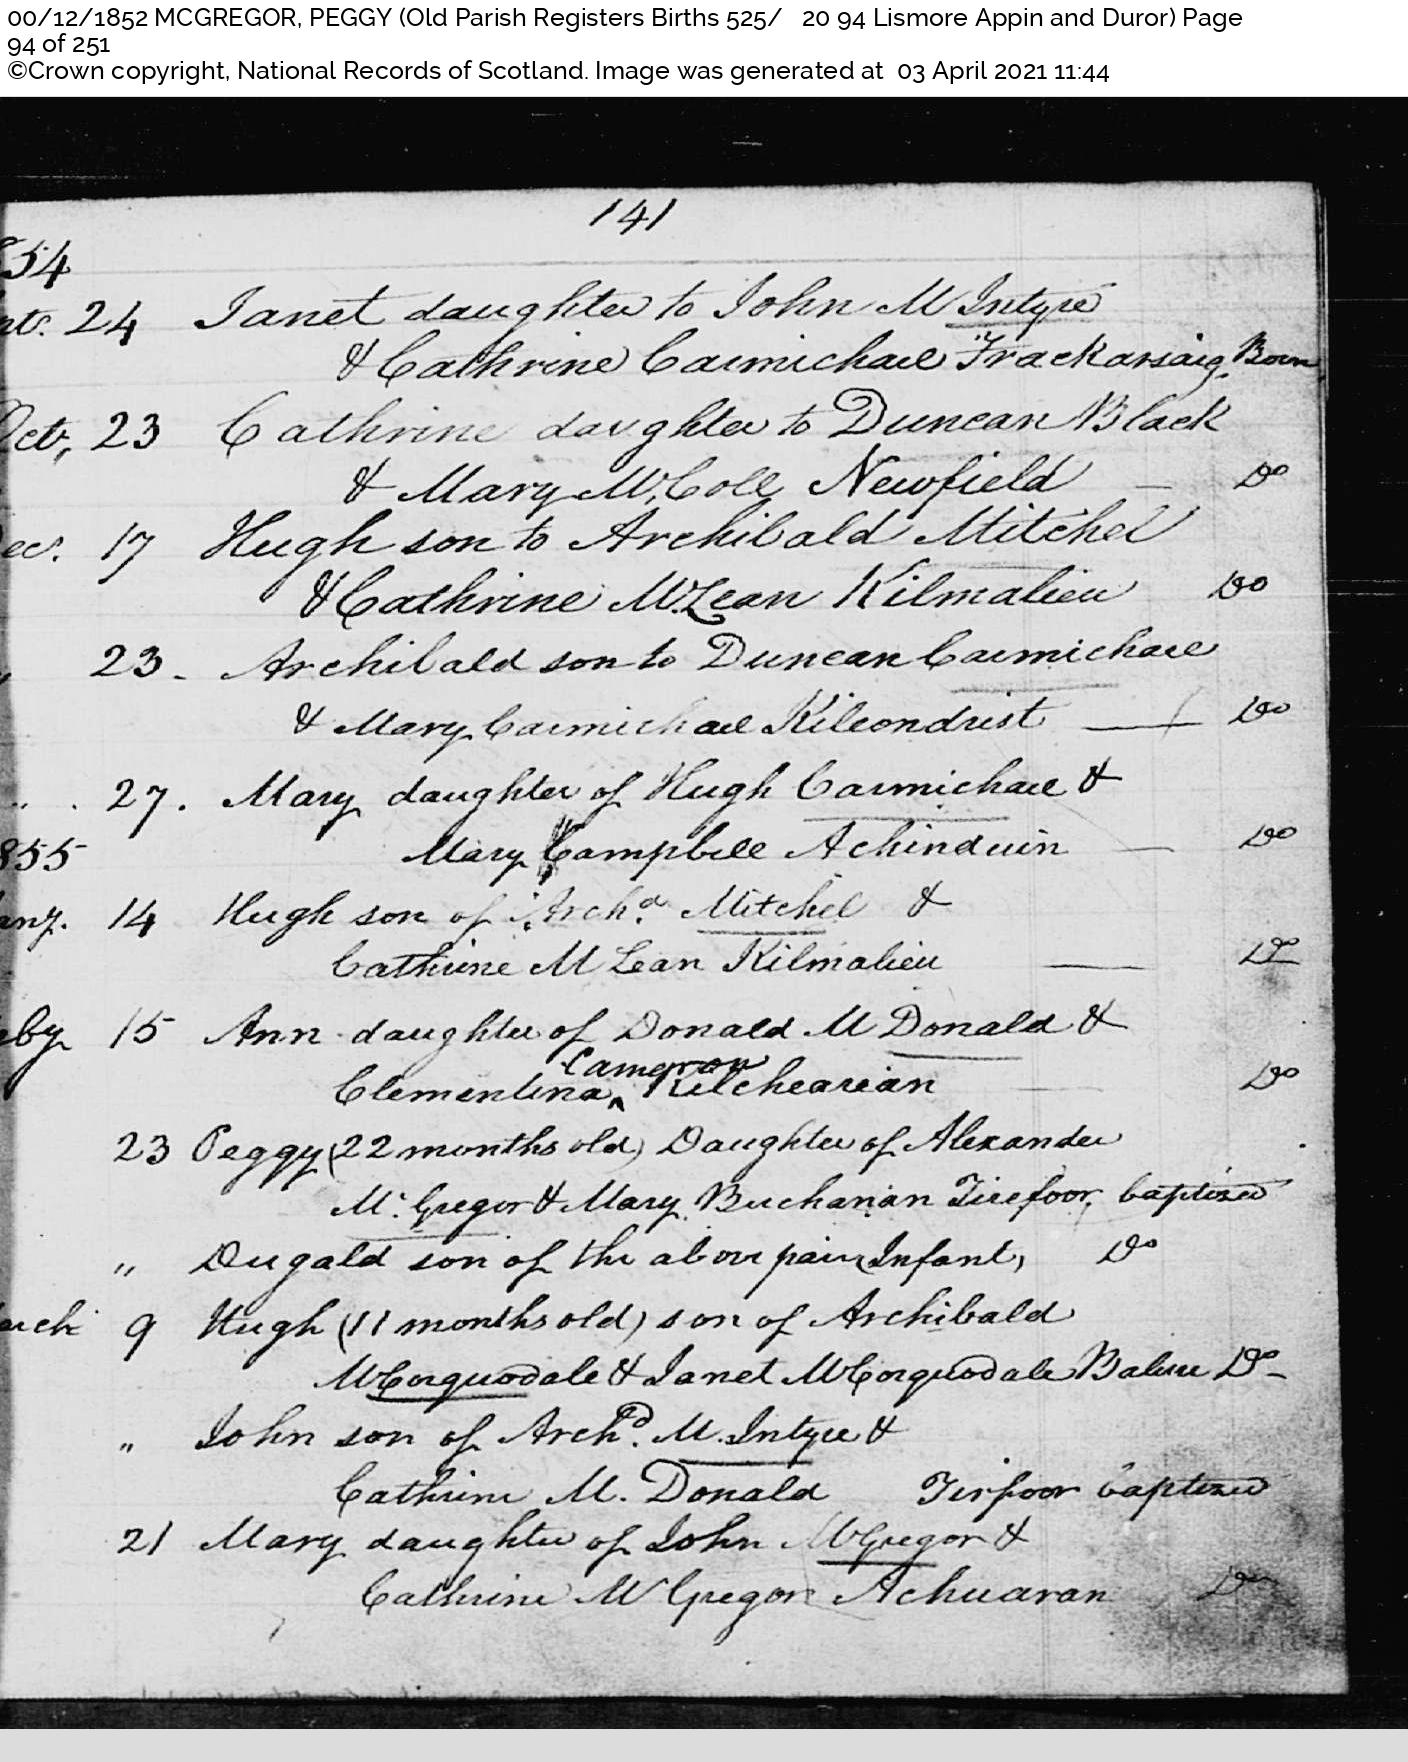 00/12/1852 MCGREGOR, PEGGY (Old Parish Registers Births 525/ 20 94 Lismore Appin and Duror) Page
94 of 251
©Crown copyright, National Records of Scotland. Image was generated at 03 April 2021 11:44
141
54
24 Janet daughter to John McIntyre
& Cathrine Carmichael Frackarsaig. Born
Oct, 23 Cathrine daughter to Duncan Black
& Mary McColl Newfield — Do
ec. 17 Hugh son to Archibald Mitchel
& Cathrine McLean Kilmalieu Do
" 23. Archibald son to Duncan Carmichael
& Mary Carmichael Kilcondrist — Do
" . 27. Mary daughter of Hugh Carmichael &
Mary Campbell Achinduin — Do
855
any. 14 Hugh son of Archd. Mitchel &
Cathrine McLean Kilmalieu — Do
eby 15 Ann daughter of Donald McDonald &
Cameron
Clementina ^ Kilchearian — Do
23 Peggy (22 months old) Daughter of Alexander
McGregor & Mary Buchanan Tirefoor, baptized
" Dugald son of the above pair, Infant, Do
arch 9 Hugh (11 months old) son of Archibald
McCorquodale & Janet McCorquodale Balure Do -
" John son of Archd. McIntyre &
Cathrine McDonald Tirfoor baptized
21 Mary daughter of John McGregor &
Cathrine McGregor Achuaran Do